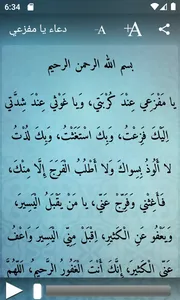 6:34
دعاء يا مفزعي
-A
+A
بسم الله الرحمن الرحيم
يا مَفْزَعي عِنْدَ كُرْبَتي، وَيا غَوْثي عِنْدَ شِدَّتي
، إِلَيْكَ فَزِعْتُ، وَبِكَ اسْتَغَثْتُ، وَبِكَ لُذْتُ
لا أَلُوذُ بِسِواكَ وَلا أَطْلُبُ الْفَرَجَ إِلّا مِنْكَ،
فَأَغِثْني وَفَرِّجْ عَنّي، يا مَنْ يَقْبَلُ الْيَسيرَ،
وَيَعْفُو عَنِ الْكَثيرِ، اِقْبَلْ مِنّي الْيَسيرَ
وَاعْفُ عَنّي الْكَثيرَ، إِنَّكَ أَنْتَ الْغَفُورُ الرَّحيمُ، اَللّهُمَّ